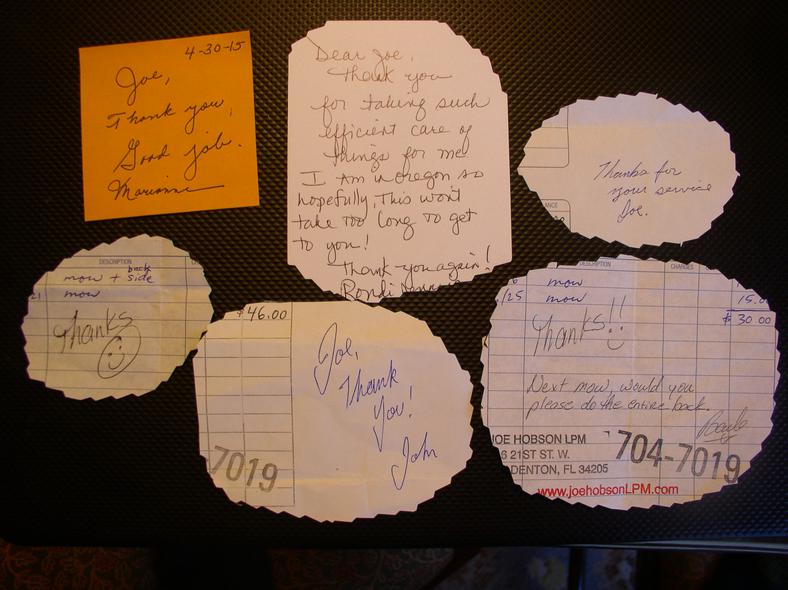 4-30-15
Joe,
Thank you,
Good job.
Marianne
Dear Joe,
Thank you
for taking such
efficient care of
things for me
I Am in oregon so
hopefully, This won't
take Too long To get
to you!
Thank you again!
Rondi
Thanks for
your service
Joe.
ANCE
DESCRIPTION
mow + back
side
mow
Thanks
$46.00
Joe,
Thank
You!
John
7019
DESCRIPTION
CHARGES
mow
/25 mow 15.0
$ 30 00
Thanks!!
Next mow, would you
please do the entire back.
JOE HOBSON LPM
6 21ST ST. W.
DENTON, FL 34205
704-7019
www.joehobsonLPM.com